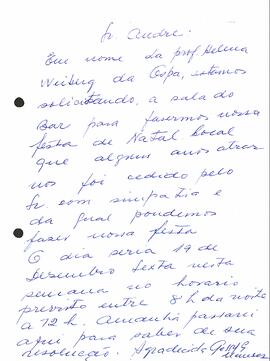 Sr. André.
Em nome da prof. Helena
Weiberg da Ospa, estamos
solicitando, a sala do
Bar para fazermos nossa
festa de Natal local
que alguns anos atraz
nos foi cedido pelo
Sr. com simpatia e
da qual pondemos
fazer nossa festa
O dia seria 19 de
Dezembro sexta nesta
semana no horario
previsto entre 8 h da noite
a 12 h. Amanhã passarei
aqui para saber de sua
resolução. Agradecida